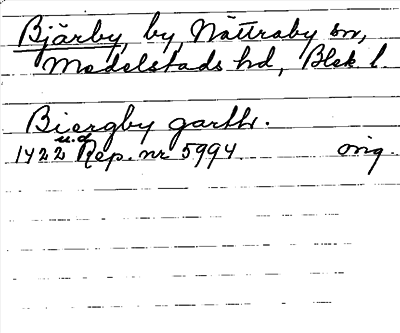 Bjärby, by Nättraby sn,
Medelstads hd, Blek l
Biergby garthr.
1422 u.d. Rep. nr 5994 orig.